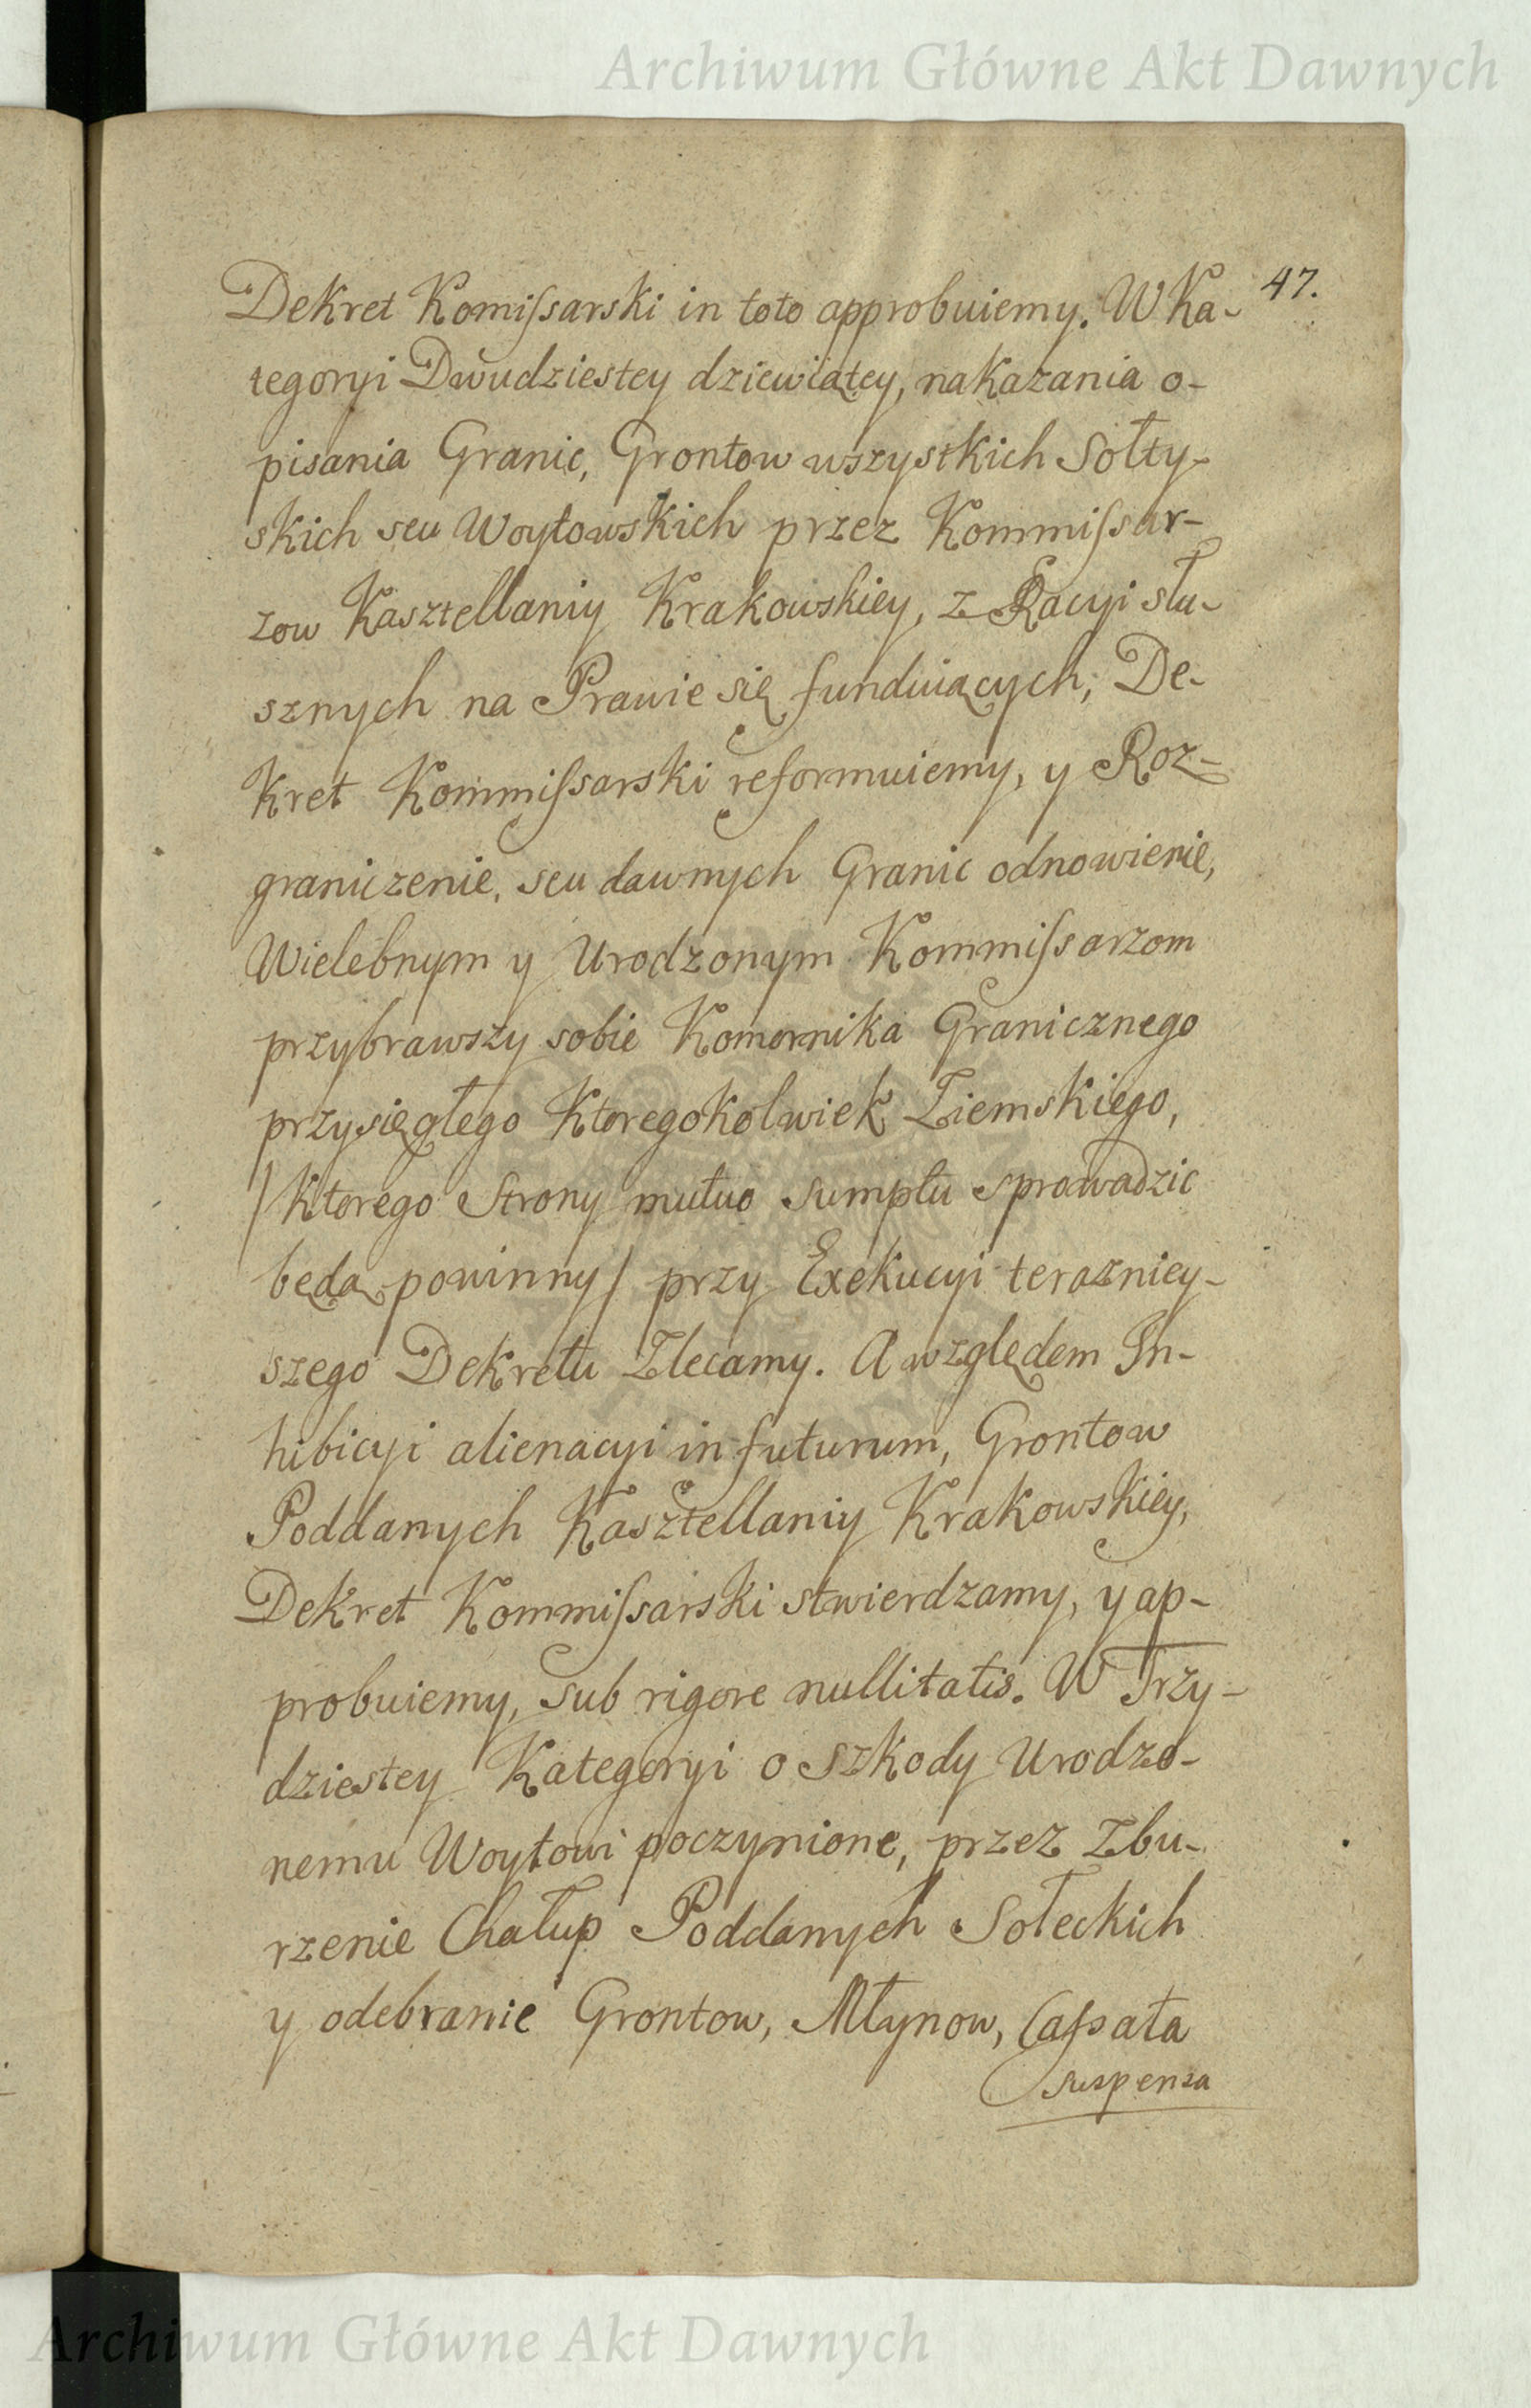 Archiwum Główne Akt Dawnych
47.
Dekret Komiſsarski in toto approbuiemy. W Ka-
tegoryi Dwudziestey dziewiątey, nakazania o-
pisania Granic, Grontow wszystkich Sołty-
skich seu Woytowskich przez Kommiſsar-
zow Kasztellaniy Krakowskiey, z Racyi słu-
sznych na Prawie się funduiących, De-
kret Kommiſsarski reformuiemy, y Roz-
graniczenie, seu dawnych Granic odnowienie,
Wielebnym y Urodzonym Kommiſsarzom
przybrawszy sobie Komornika Granicznego
przysięgłego Ktoregokolwiek Ziemskiego,
/ktorego Strony mutuo sumptu sprowadzic
będą powinny/ przy Exekucyi terazniey-
szego Dekretu Zlecamy. A względem In-
hibicyi alienacyi in futurum, Grontow
Poddanych Kasztellaniy Krakowskiey,
Dekret Kommiſsarski stwierdzamy, y ap-
probuiemy, sub rigore nullitatis. W Trzy-
dziestey Kategoryi o szkody Urodzo-
nemu Woytowi poczynione, przez Zbu-
rzenie Chałup Poddanych Sołeckich
y odebranie Grontow, Młynow, Caſsata
suspensa
Archiwum Główne Akt Dawnych